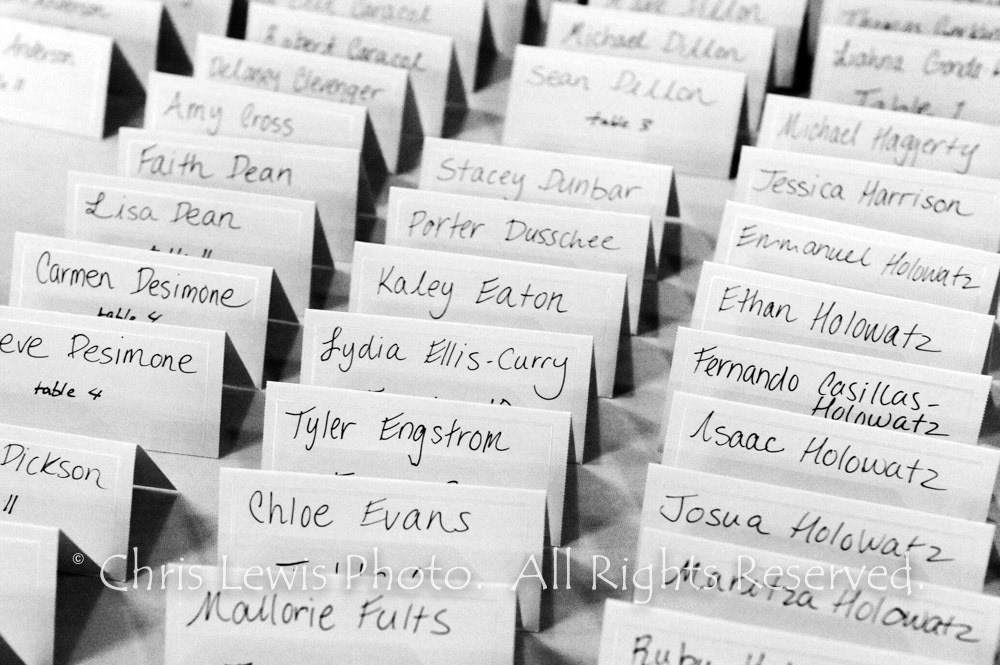 Anderson
11
Delaney Clevenger
Amy Cross
Faith Dean
Lisa Dean
table 11
Carmen Desimone
table 4
eve Desimone
table 4
Dickson
11
Caracol
Robert Caracol
Dillon
Michael Dillon
Sean Dillon
table 3
Stacey Dunbar
Porter Dusschee
Kaley Eaton
Lydia Ellis-Curry
Tyler Engstrom
Chloe Evans
Mallorie Fults
Thomas
Gonda
Table 1
Michael Haggerty
Jessica Harrison
Emmanuel Holowatz
Ethan Holowatz
Fernando Casillas-
Holowatz
Isaac Holowatz
Josua Holowatz
Maritza Holowatz
Ruby
© Chris Lewis Photo. All Rights Reserved.